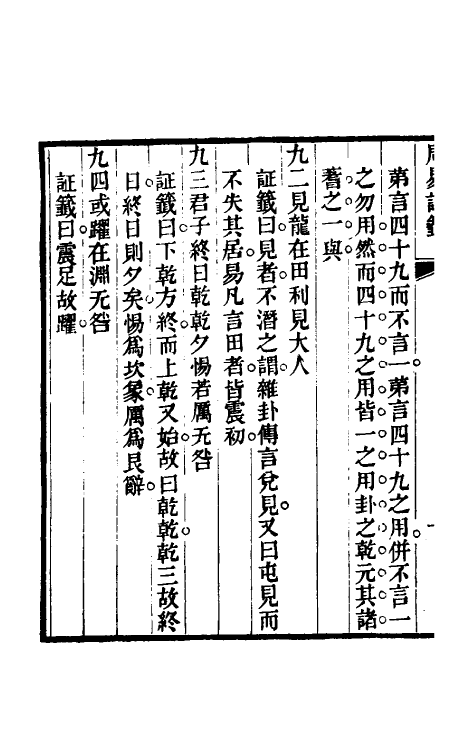 周易証籤
第言四十九而不言一第言四十九之用併不言一
之勿用然而四十九之用皆一之用卦之乾元其諸
蓍之一與
九二見龍在田利見大人
証籤曰見者不潛之謂雜卦傳言兌見又曰屯見而
不失其居易凡言田者皆震初
九三君子終日乾乾夕惕若厲无咎
証籤曰下乾方終而上乾又始故曰乾乾乾三故終
日終日則夕矣惕爲坎象厲爲艮辭
九四或躍在淵无咎
証籤曰震足故躍